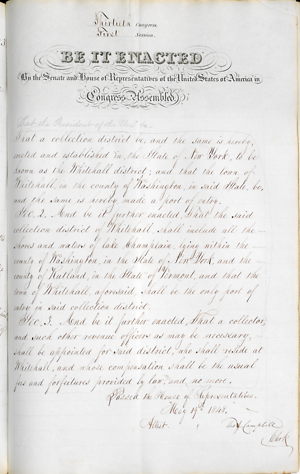 Thirtieth Congress
First Session
BE IT ENACTED
By the Senate and House of Representatives of the United States of America in
Congress Assembled,
That a collection district be, and the same is hereby,
erected and established in the State of New York, to be
known as the Whitehall district; and that the town of
Whitehall, in the county of Washington, in said State, be,
and the same is hereby made a port of entry.
Sec. 2. And be it further enacted, That the said
collection district of Whitehall shall include all the
shores and waters of lake Champlain, lying within the
county of Washington, in the State of New York, and the
county of Rutland, in the State of Vermont, and that the
town of Whitehall, aforesaid, shall be the only port of
entry in said collection district.
Sec. 3. And be it further enacted, That a collector,
and such other revenue officers as may be necessary,
shall be appointed for said district, who shall reside at
Whitehall, and whose compensation shall be the usual
fees and forfeitures provided by law, and no more.
Passed the House of Representatives
May 19th 1848.
Attest. Campbell
Clerk